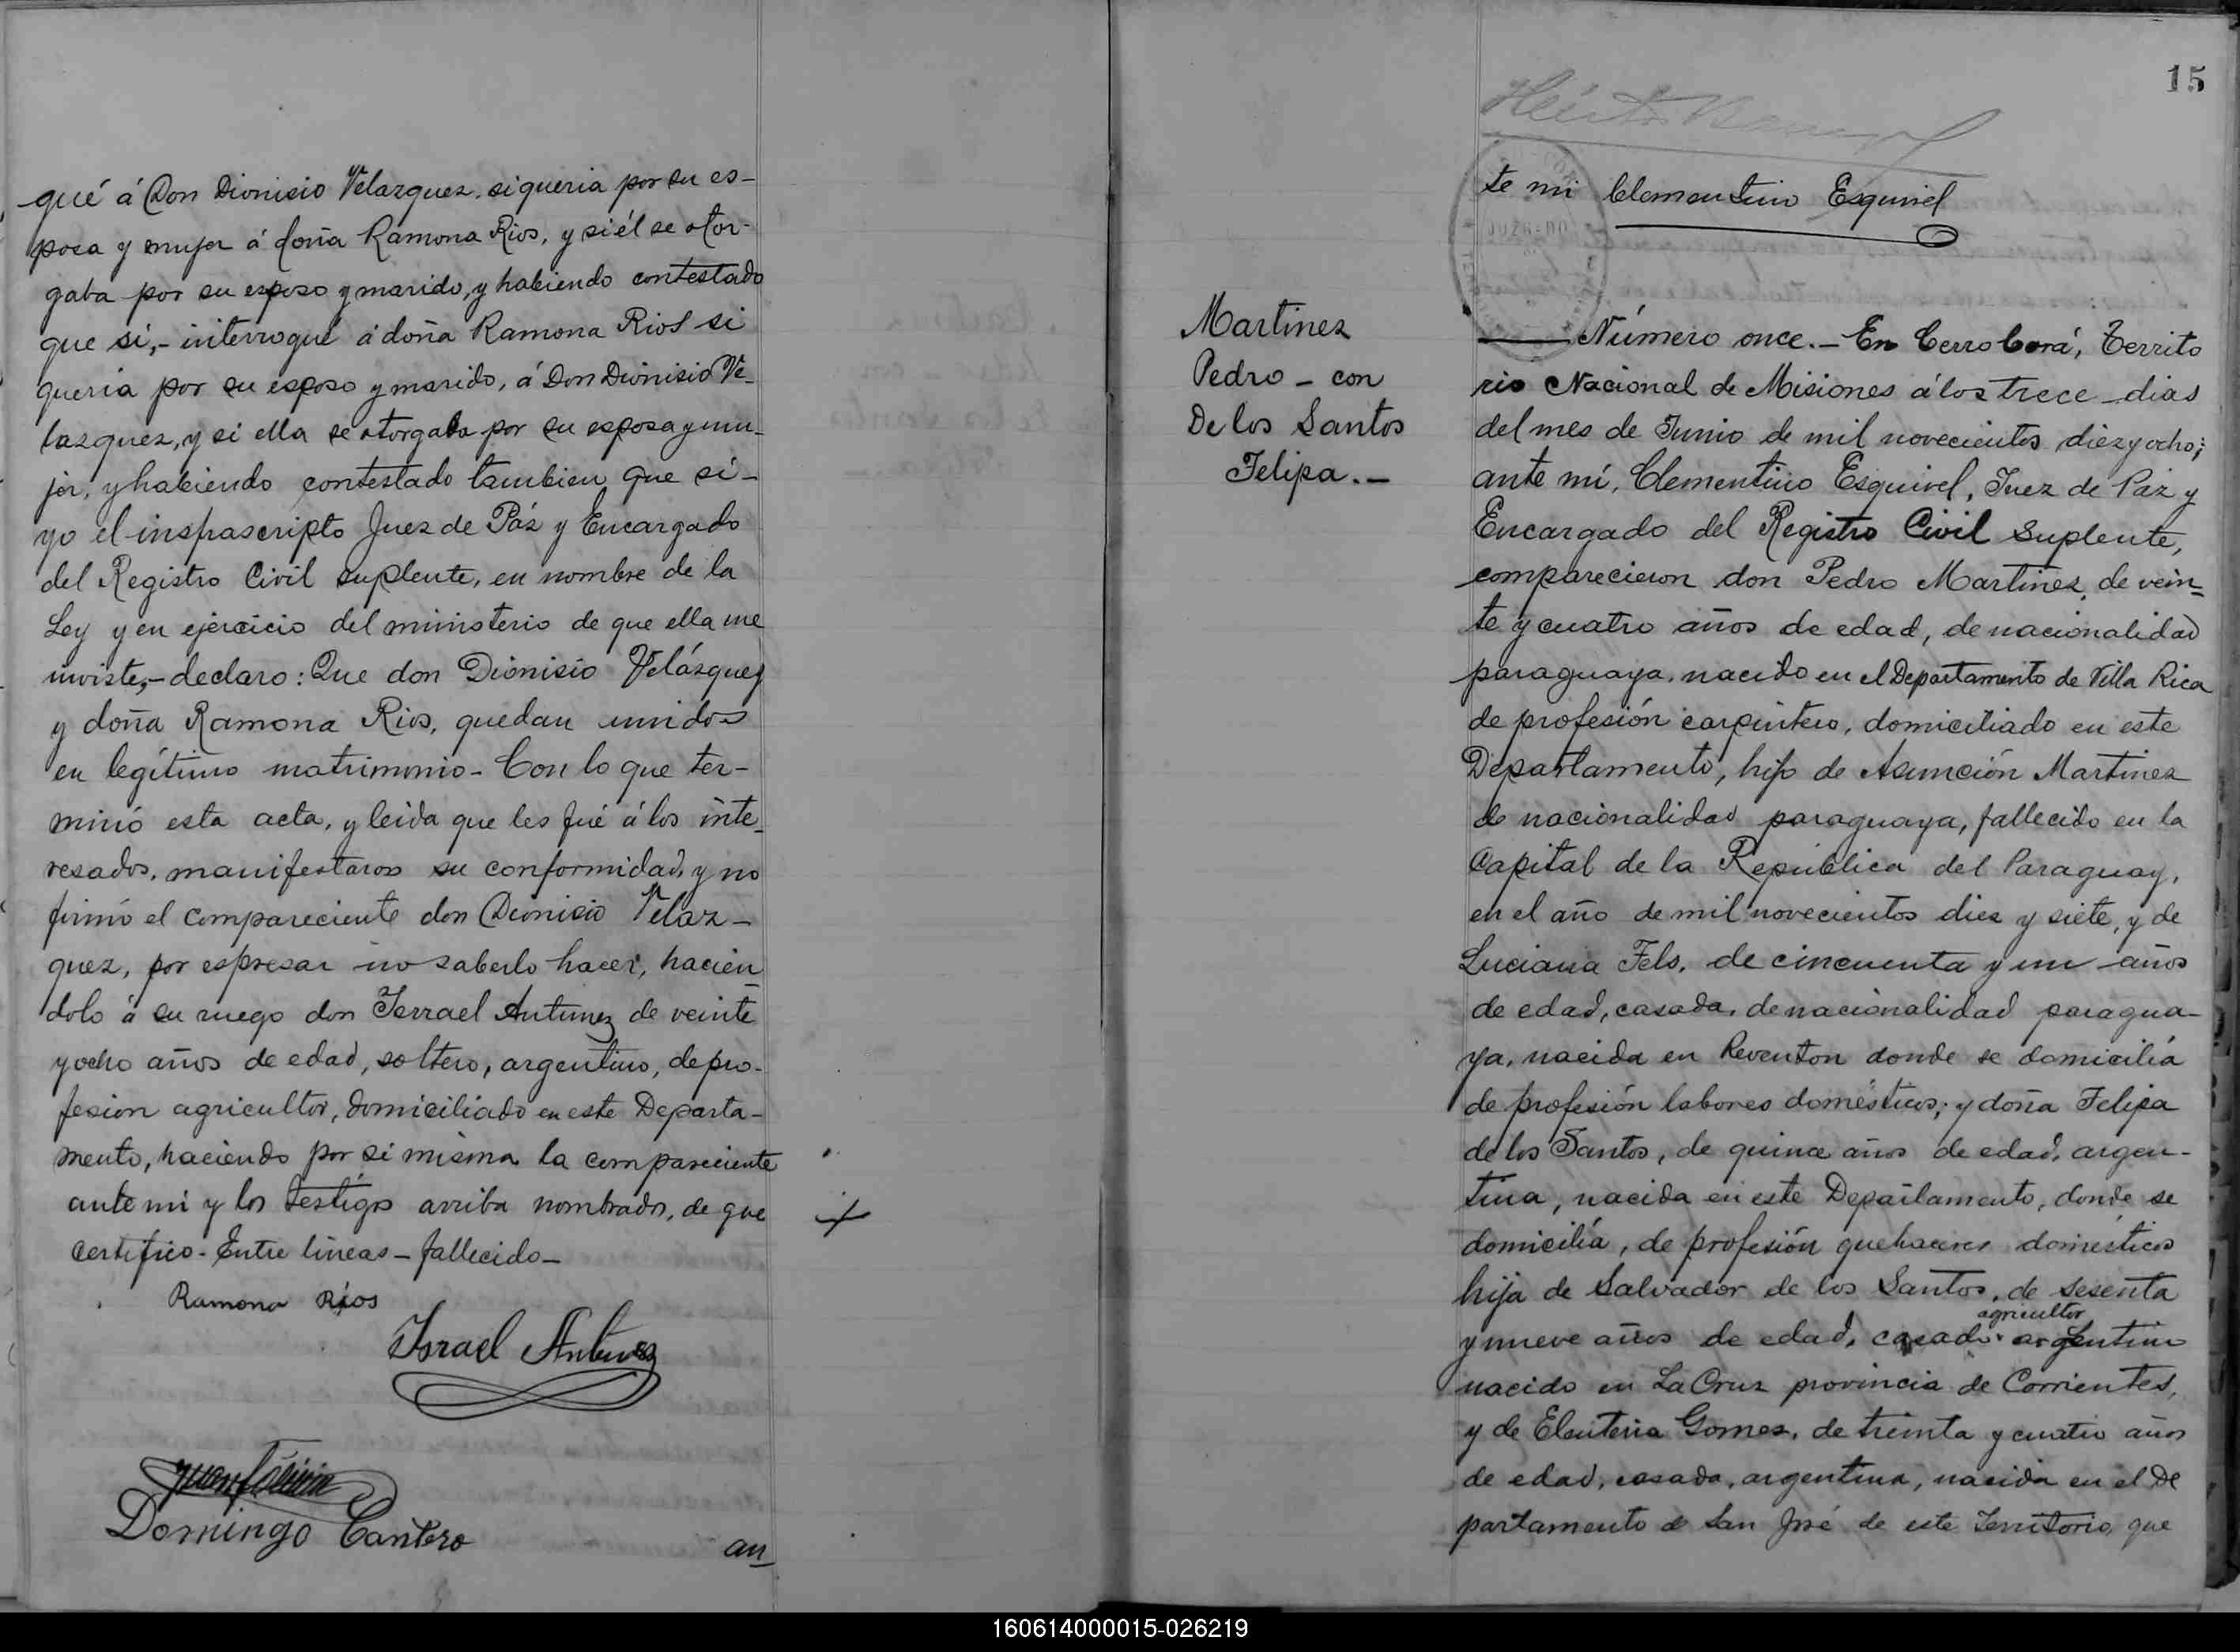 qué á Don Dionisio Velazquez. si queria por su es-
posa y mujer á doña Ramona Rios, y si él se otor-
gaba por su esposo y marido, y habiendo contestado
que si,- interrogué á doña Ramona Rios si
queria por su esposo y marido, á Don Dionisio Ve-
lazquez, y si ella se otorgaba por su esposa y mu-
jer, y habiendo contestado tambien que si-
yo el infrascripto Juez de Páz y Encargado
del Registro Civil suplente, en nombre de la
Ley y en ejercicio del ministerio de que ella me
inviste,- declaro: Que don Dionisio Velásquez
y doña Ramona Rios, quedan unidos
en legítimo matrimonio- Con lo que ter-
minó esta acta, y leida que les fué á los inte-
resados, manifestaron su conformidad, y no
firmó el compareciente don Dionisio Velaz-
quez, por espresar no saberlo hacer, hacien-
dolo á su ruego don Isrrael Antunez de veinte
y ocho años de edad, soltero, argentino, de pro-
fesion agricultor, domiciliado en este Departa-
mento, haciendo por si misma la compareciente
ante mi y los testigos arriba nombrados, de que
certifico- Entre líneas- fallecido-
Ramona Rios
Israel Antunez
Domingo Cantero
an
15
te mi Clementino Esquivel
Martinez
Pedro - con
De los Santos
Felipa.-
Número once.- En Cerro Corá, Territo
rio Nacional de Misiones á los trece dias
del mes de Junio de mil novecientos diez y ocho;
ante mí, Clementino Esquivel, Juez de Paz y
Encargado del Registro Civil Suplente,
comparecieron don Pedro Martinez, de vein-
te y cuatro años de edad, de nacionalidad
paraguaya, nacido en el Departamento de Villa Rica
de profesión carpintero, domiciliado en este
Departamento, hijo de Asunción Martinez
de nacionalidad paraguaya, fallecido en la
Capital de la República del Paraguay,
en el año de mil novecientos diez y siete, y de
Luciana Fels, de cincuenta y un años
de edad, casada, de nacionalidad paragua-
ya, nacida en Reventon donde se domicilia
de profesión labores domésticos; y doña Felipa
de los Santos, de quince años de edad, argen-
tina, nacida en este Departamento, donde se
domicilia, de profesión quehaceres domésticos
hija de Salvador de los Santos, de sesenta
agricultor
y nueve años de edad, casado argentino
nacido en La Cruz provincia de Corrientes,
y de Eleuteria Gomez, de treinta y cuatro años
de edad, casada, argentina, nacida en el De
partamento de San José de este Territorio, que
160614000015-026219